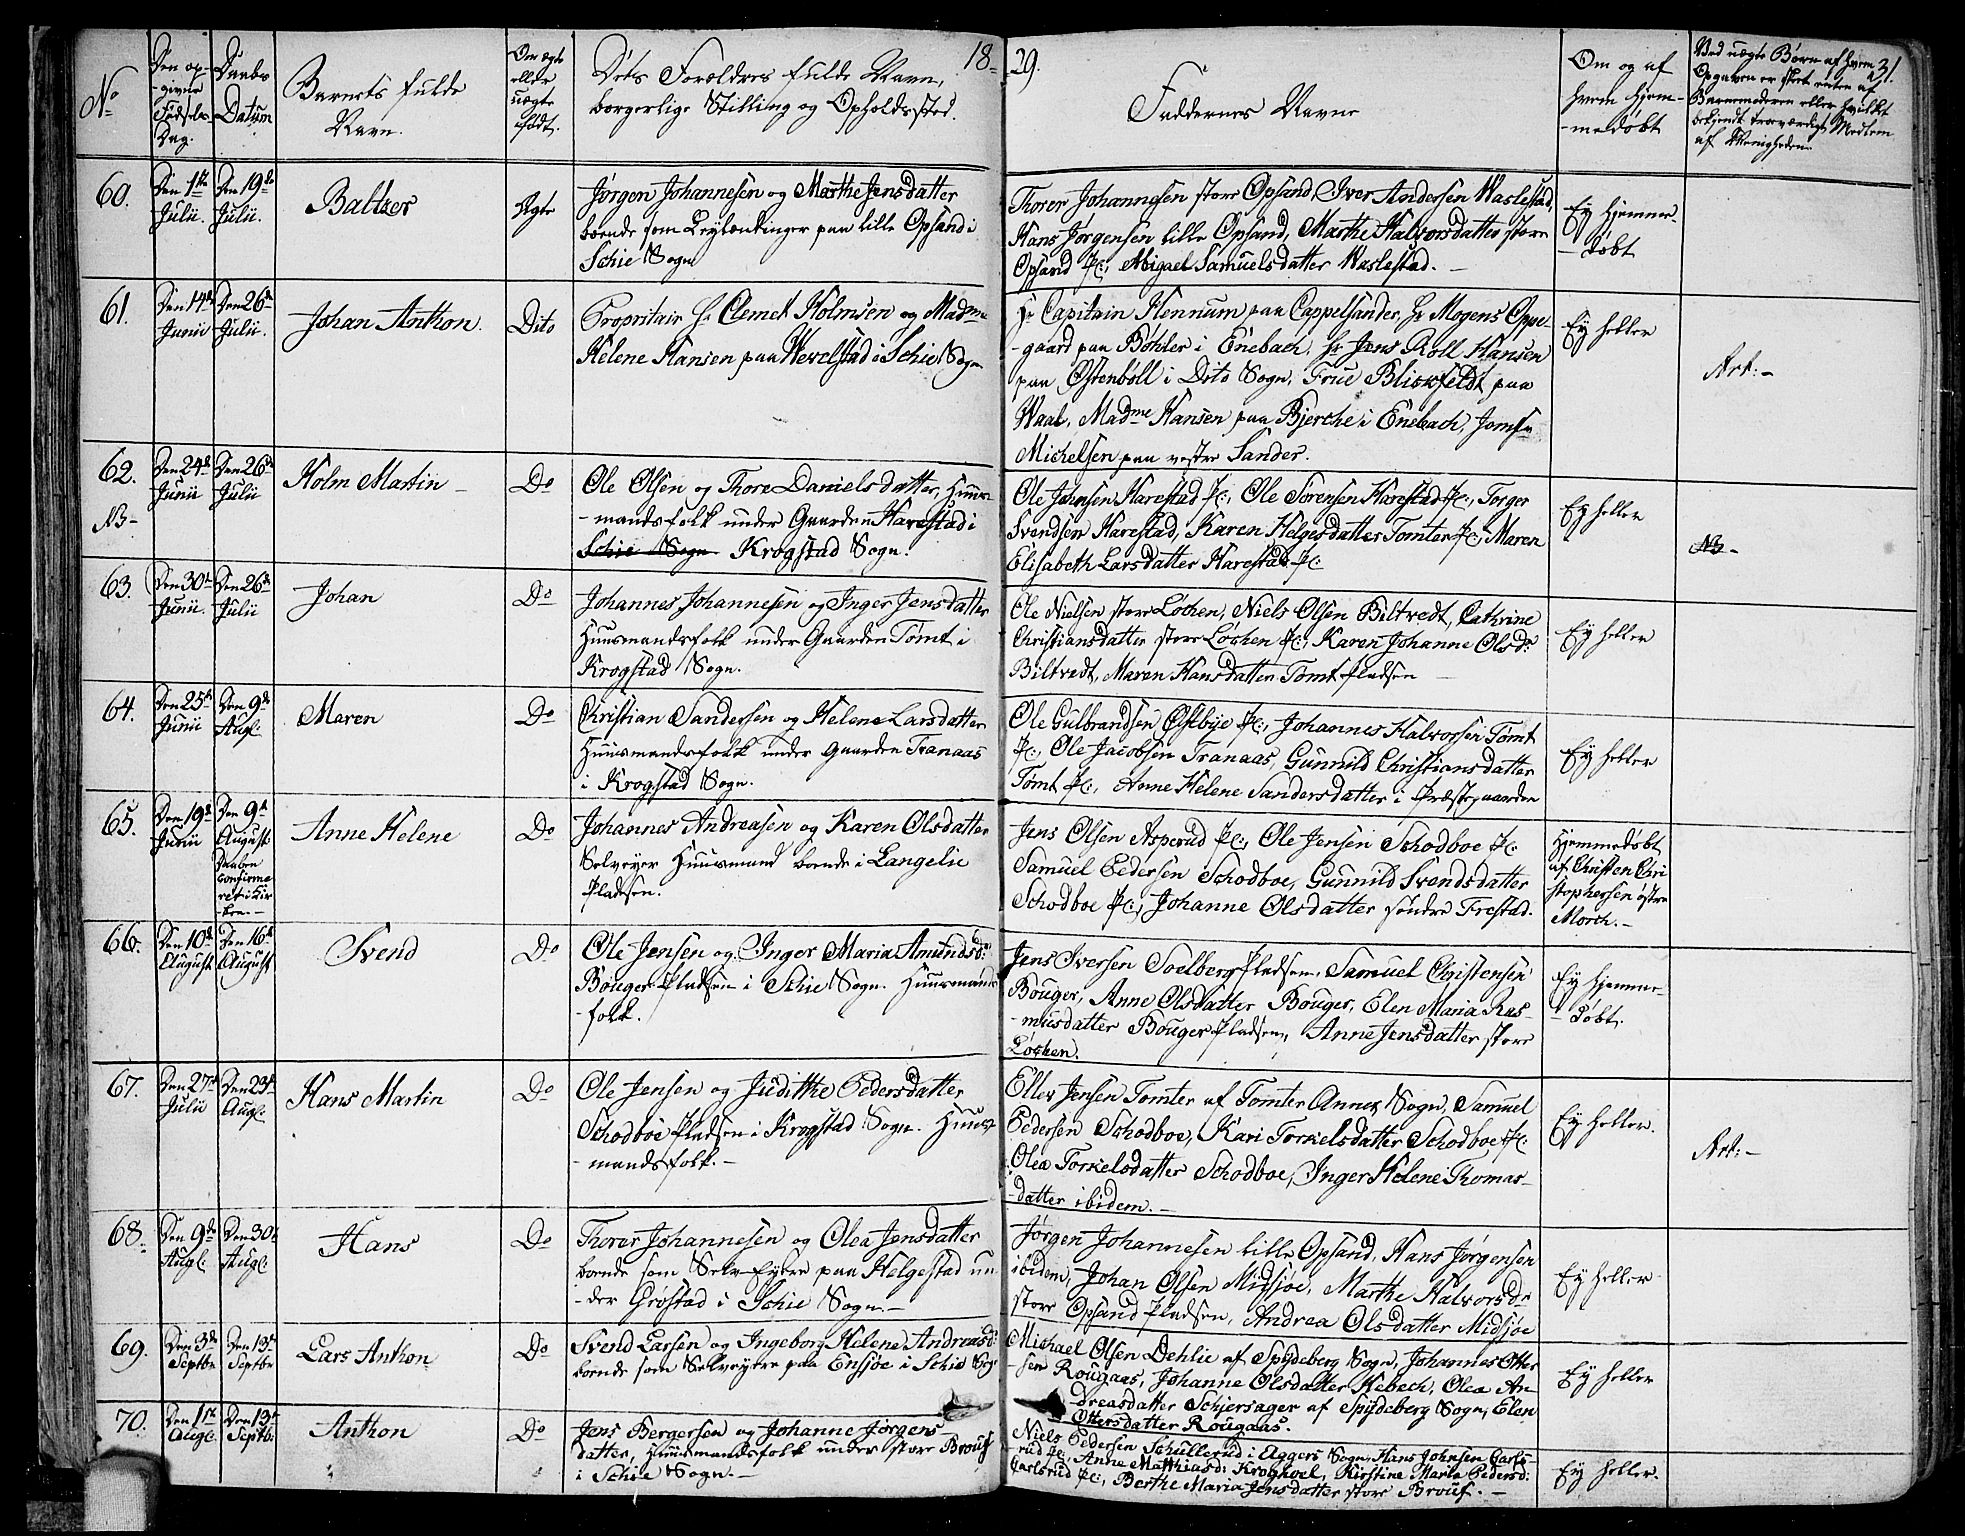 No
Den op-
-givne
Fødsels
Dag.
Daabs
Datum
Barnets fulde
Navn.
Om ægte
eller
uægte
født.
Dets Forældres fulde Navn,
borgerlige Stilling og Opholdssted.
18-
29.
Faddernes Navne
Om og af
hvem hjem-
-medøbt
Ved uægte Børn af hvem
Opgaven er skeet enten af
Barnemoderen eller hvilket
bekjendt troværdigt Medlem
af Menigheden
31.
60.
Den 1ste
Julii.
Den 19de
Julii.
Baltzer
Ægte
Jørgen Johannesen og Marthe Jensdatter
boende som Leylændinger paa lille Opsand i
Schie Sogn
Thorer Johannesen store Opsand, Iver Andersen Waslestad,
Hans Jørgensen lille Opsand, Marthe Halvorsdatter store
Opsand Pl:, Abigael Samuelsdatter Waslestad. -
Ey hjemme-
-døbt
61.
Den 14de
Junii
Den 26de
Julii.
Johan Anthon.
Dito
Propritair Hr Clemet Holmsen og Madme
Helene Hansen paa Hevelstad i Schie Sogn
Hr Capitain Hennum paa Cappelsander, Hr Mogens Oppe-
-gaard paa Bøhler i Enebach, Hr Jens Roll Hansen
paa Østenboll i Dito Sogn, Frue Blickfeldt paa
Waal, Madme Hansen paa Bjerche i Enebach, Jomfr
Michelsen paa vestre Sander.
Ey heller
Art:-
62.
NB-
Den 24de
Junii
Den 26de
Julii
Holm Martin -
Do
Ole Olsen og Thore Danielsdatter, Huus-
-mandsfolk under Gaarden Harestad i
Schie Sogn Krogstad Sogn.
Ole Johnsen Harestad Pl:, Ole Sörensen Harestad Pl:, Torger
Svendsen Harestad, Karen Helgesdatter Tomter Pl:, Maren
Elisabeth Larsdatter Harestad Pl:
Ey heller
NB-
63.
Den 30te
Junii.
Den 26de
Julii
Johan
Do
Johannes Johannesen og Inger Jensdatter
Huusmandsfolk under Gaarden Tømt i
Krogstad Sogn.
Ole Nielsen store Löchen, Niels Olsen Biltvedt, Cathrine
Christiansdatter store Löchen Pl:, Karen Johanne Olsd:
Biltvedt, Maren Hansdatter Tømt Pladsen
Ey heller
64.
Den 25de
Junii
Den 9de
Augt.
Maren
Do
Christian Sandersen og Helene Larsdatter
Huusmandsfolk under Gaarden Tranaas
i Krogstad Sogn.
Ole Gulbrandsen Østbye Pl:, Johannes Halvorsen Tømt
Pl:, Ole Jacobsen Tranaas, Gunnild Christiansdatter
Tømt Pl:, Anne Helene Sandersdatter i Præstegaarden
Ey heller
65.
Den 19de
Junii
Den 9de
August
Daaben
confirme
ret i Kir
ken.-
Anne Helene
Do
Johannes Andreasen og Karen Olsdatter
Selveyer Huusmand boende i Langelie
Pladsen.
Jens Olsen Asperud Pl:, Ole Jensen Schodboe Pl:
Samuel Pedersen Schodboe, Gunnild Svendsdatter
Schodboe Pl:, Johanne Olsdatter søndre Frestad.
Hjemmedøbt
af Christen Chri
stophersen østre
Morch.-
66.
Den 10de
August
Den 16de
August
Svend
Do
Ole Jensen og Inger Maria Amundsd:
Bouger Pladsen i Schie Sogn. Huusmands
-folk.
Jens Iversen Soelberg Pladsen, Samuel Christensen
Bouger, Anne Olsdatter Bouger, Elen Maria Ras-
-musdatter Bouger Pladsen, Anne Jensdatter store
Löchen.
Ey hjemme-
-døbt.
67.
Den 27de
Julii
Den 23de
Augt.
Hans Martin
Do
Ole Jensen og Judithe Pedersdatter
Schodboe Pladsen i Krogstad Sogn. Huus-
-mandsfolk.-
Ellev Jensen Tomter af Tomter Annex Sogn, Samuel
Pedersen Schodboe, Kari Torkelsdatter Schodboe Pl:
Olea Torkelsdatter Schodboe, Inger Helene Thomas-
-datter ibidem.-
Ey heller.
Art:-
68.
Den 9de
Augt.
Den 30te
Augt.
Hans
Do
Thorer Johannesen og Olea Jensdatter
boende som Selv-Eyere paa Helgestad un-
-der Grøstad i Schie Sogn.-
Jørgen Johannesen lille Opsand, Hans Jørgensen
ibidem, Johan Olsen Midsjøe, Marthe Halvorsdr
store Opsand Pladsen, Andrea Olsdatter Midsjøe
Ey heller
69.
Den 3de
Septbr
Den 13de
Septbr
Lars Anthon
Do
Svend Larsen og Ingeborg Helene Andreasd:
boende som Selveyere paa Ensjøe i Schie Sogn
Michael Olsen Dehlie af Spydeberg Sogn, Johannes Otter
-sen Rougaas, Johanne Olsdatter Hebech, Olea An
dreasdatter Schjersager af Spydeberg Sogn, Elen
Ottersdatter Rougaas.
Ey heller
70.
Den 1ste
Augt.
Den 13de
Septb.
Anthon
Do
Jens Bergersen og Johanne Jørgens-
datter, Huusmandsfolk under store Brouf
i Schie Sogn.-
Niels Pedersen Schullerud i Aggers Sogn, Hans Johnsen Carls-
rud Pl:, Anne Matthiasd: Kroghoel, Kirstine Maria Pedersd:
Carlsrud Pl:, Berthe Maria Jensdatter store Brouf. -
Ey heller.